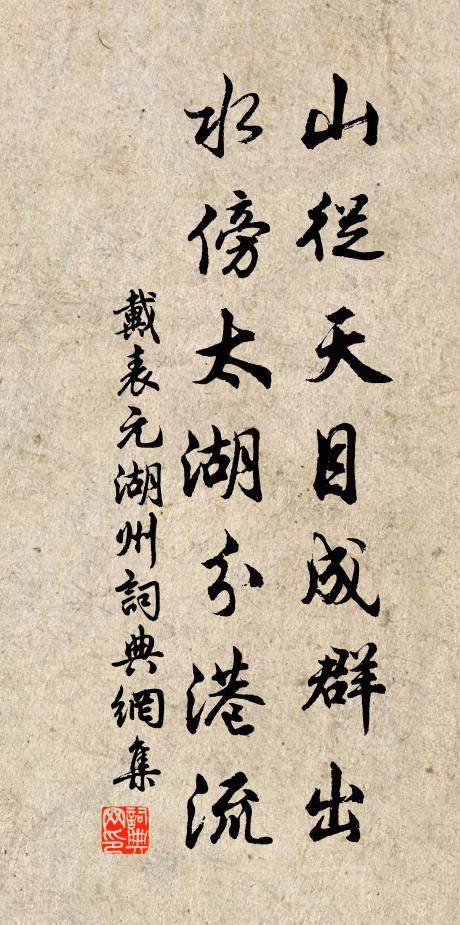 山從天目成群出
水傍太湖分港流
戴表元湖州詞典網集
詞典網印